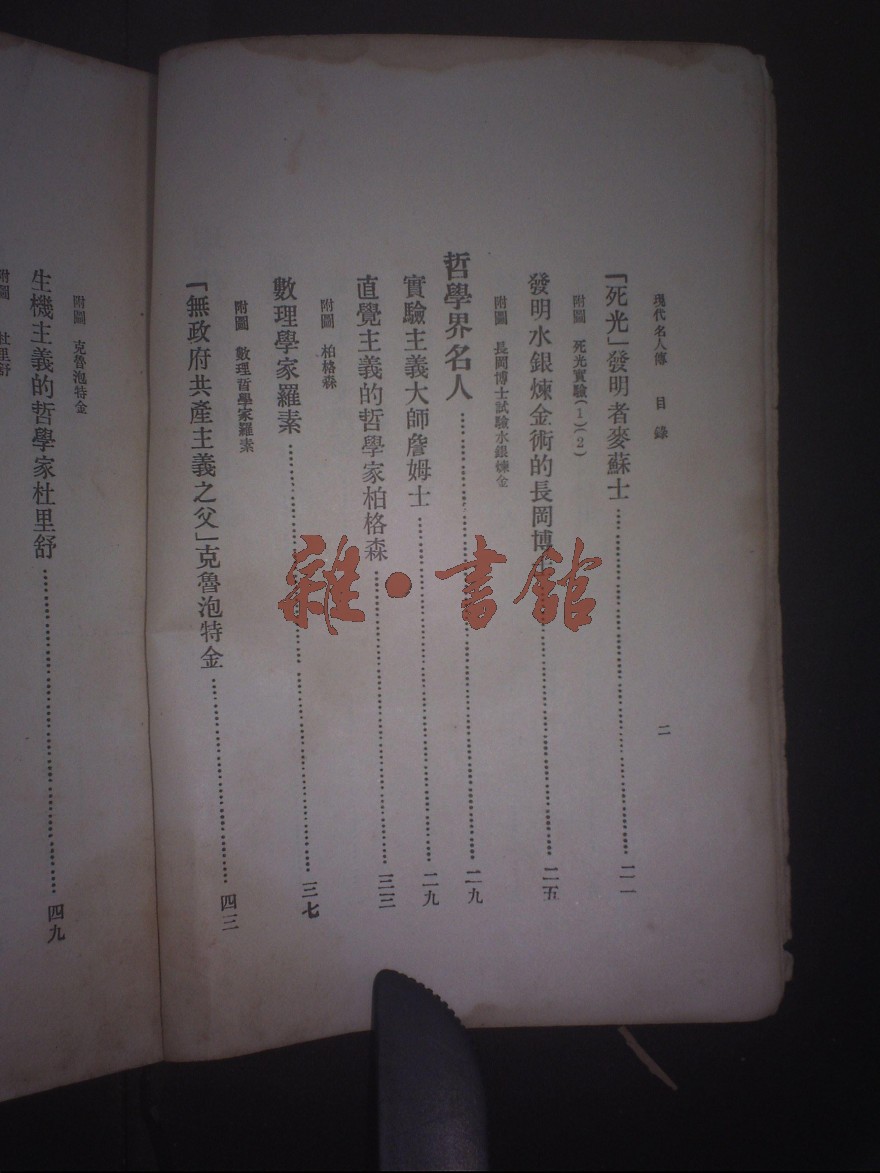 現代名人傳 目錄 二
「死光」發明者麥蘇士……二一
附圖 死光實驗(1)(2)
發明水銀煉金術的長岡博士……二五
附圖 長岡博士試驗水銀煉金
哲學界名人……二九
實驗主義大師詹姆士……二九
直覺主義的哲學家柏格森……三三
附圖 柏格森
數理學家羅素……三七
附圖 數理哲學家羅素
「無政府共產主義之父」克魯泡特金……四三
附圖 克魯泡特金
生機主義的哲學家杜里舒……四九
附圖 杜里舒
雜·書館